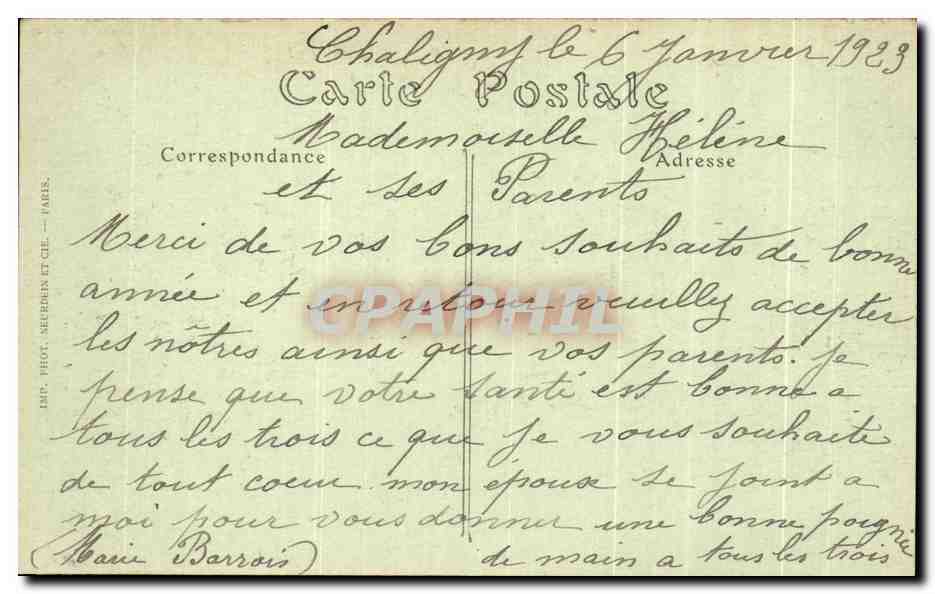 Chaligny le 6 Janvier 1923
Carte Postale
Mademoiselle Hélène
Correspondance
Adresse
et ses Parents
Merci de vos bons souhaits de bonne
année et en retour veuillez accepter
les nôtres ainsi que vos parents. je
pense que votre santé est bonne a
tous les trois ce que je vous souhaite
de tout coeur mon époux se joint a
moi pour vous donner une bonne poignée
de main a tous les trois
(Marie Barrois)
IMP. PHOT. NEURDEIN ET CIE. — PARIS.
CPAPHIL